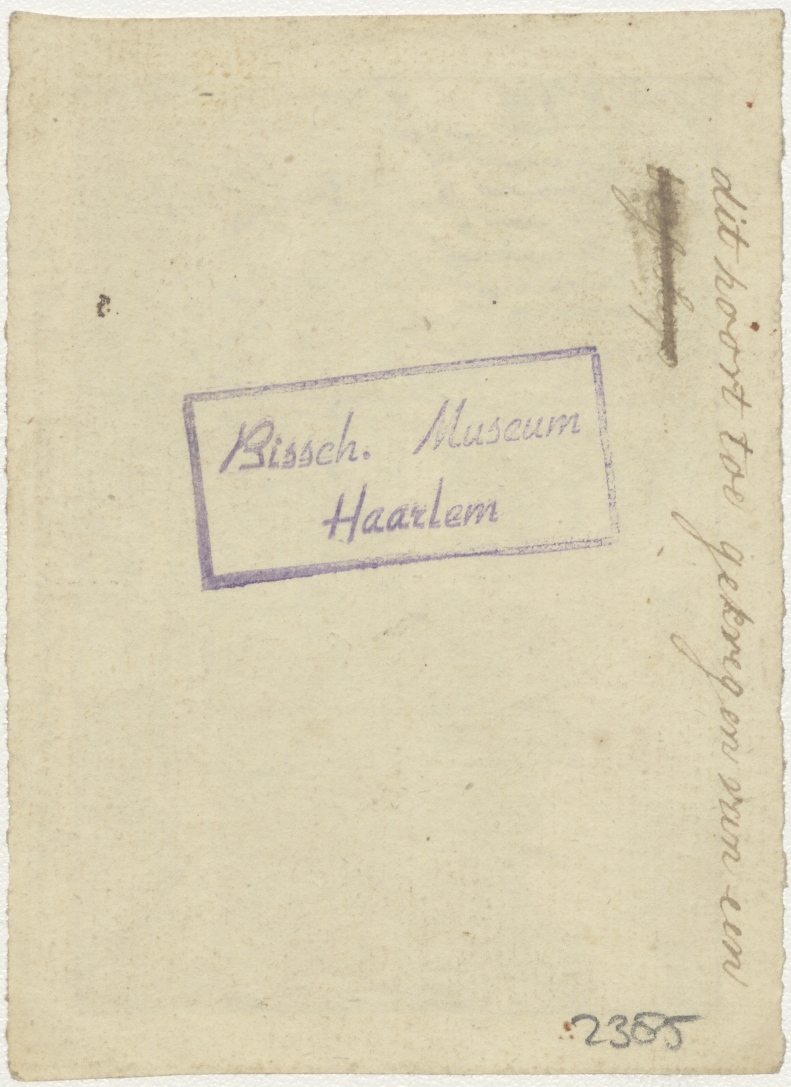 dit hoort toe gekregen van een
Bissch. Museum
Haarlem